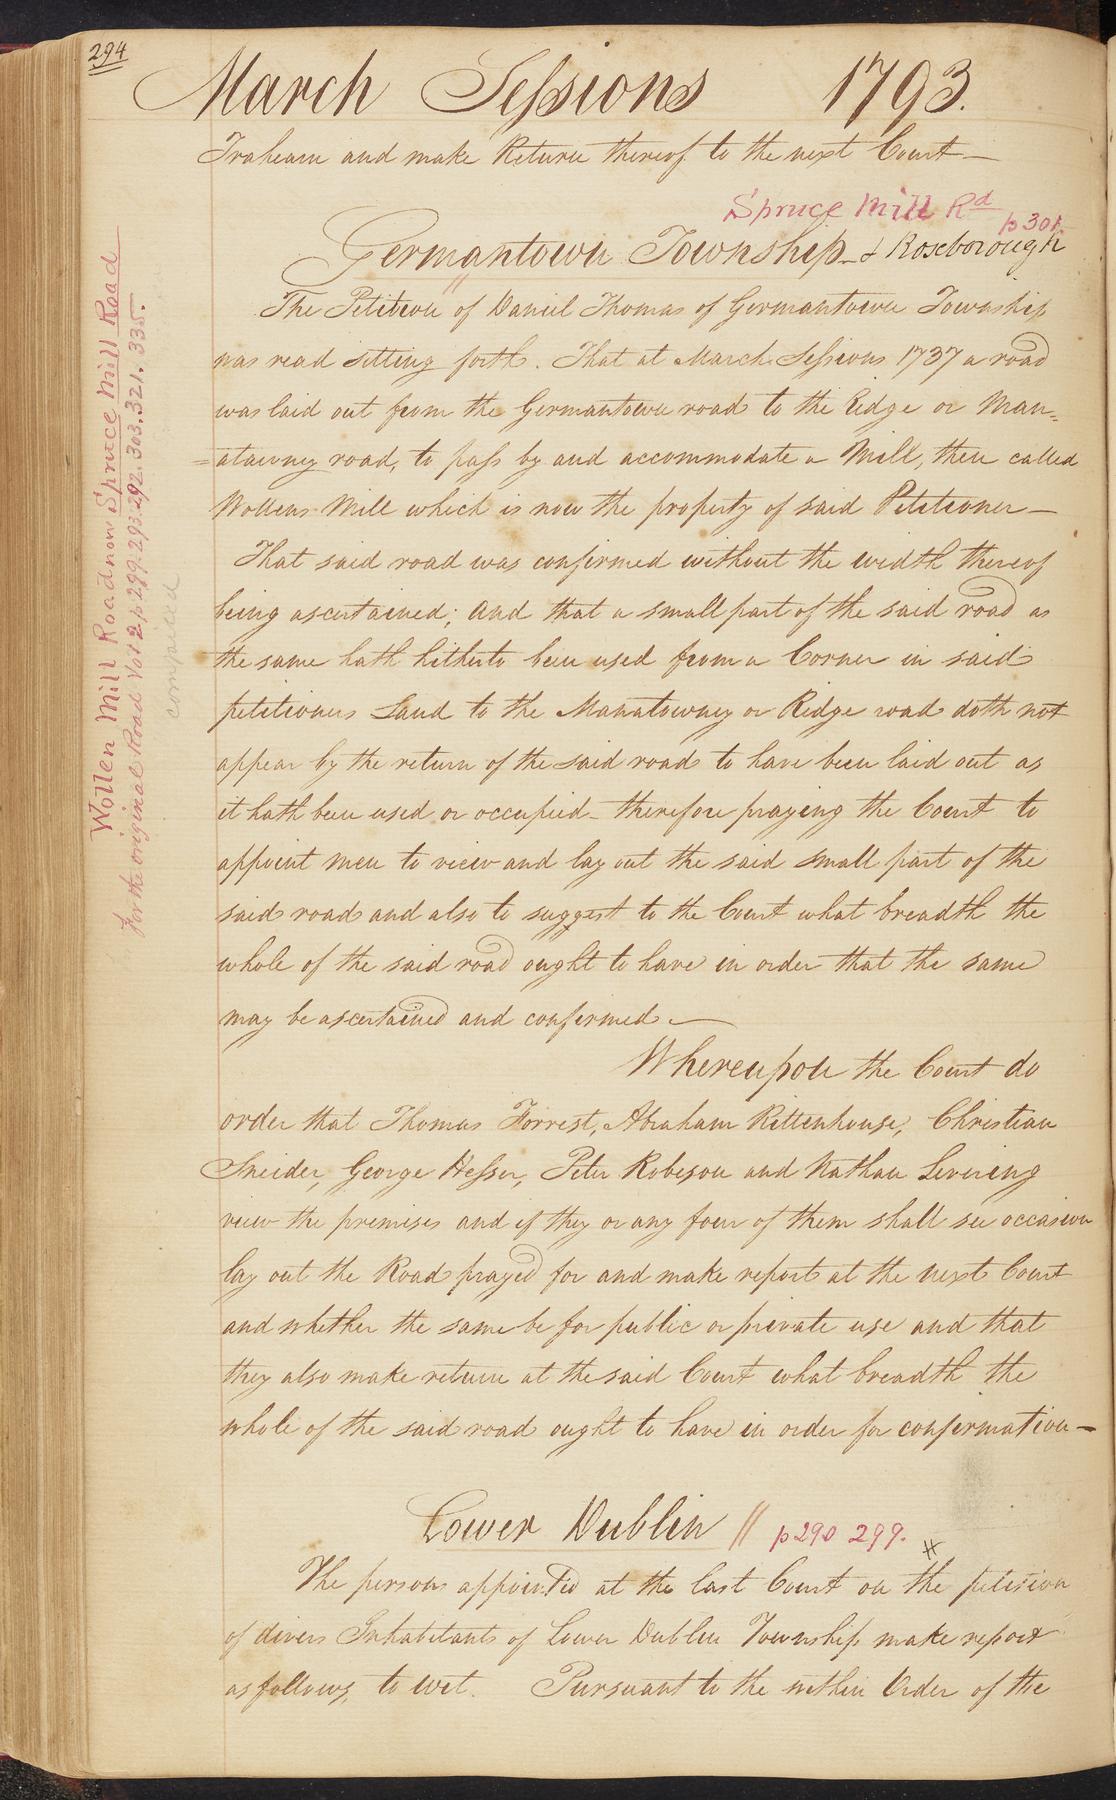 294
March Sessions 1793.
Traheam and make Return thereof to the next Court —
Spruce Mill Rd
p 301.
Germantown Township & Roxborough
The Petition of Daniel Thomas of Germantown Township
was read setting forth. That at March Sessions 1737 a road
was laid out from the Germantown road to the Ridge or Man=
=atawny road, to pass by and accommodate a Mill, then called
Wollens Mill which is now the property of said Petitioner —
That said road was confirmed without the width thereof
being ascertained; and that a small part of the said road as
the same hath hitherto been used from a Corner in said
petitioners Land to the Manatawney or Ridge road doth not
appear by the return of the said road to have been laid out as
it hath been used or occupied - therefore praying the Court to
appoint men to view and lay out the said small part of the
said road and also to suggest to the Court what breadth the
whole of the said road ought to have in order that the same
may be ascertained and confirmed —
Whereupon the Court do
order that Thomas Forrest, Abraham Rittenhouse, Christian
Sneider, George Hesser, Peter Robeson and Nathan Levering
view the premises and if they or any four of them shall see occasion
lay out the Road prayed for and make report at the next Court
and whether the same be for public or private use and that
they also make return at the said Court what breadth the
whole of the said road ought to have in order for confirmation —
Lower Dublin // p 290 299.
The persons appointed at the last Court on the petition
of divers Inhabitants of Lower Dublin Township make report
as follows, to wit. Pursuant to the within Order of the
Wollen Mill Road now Spruce Mill Road
For the original Road Vol 2, p 299. 293. 292. 303. 321. 335.
compiled